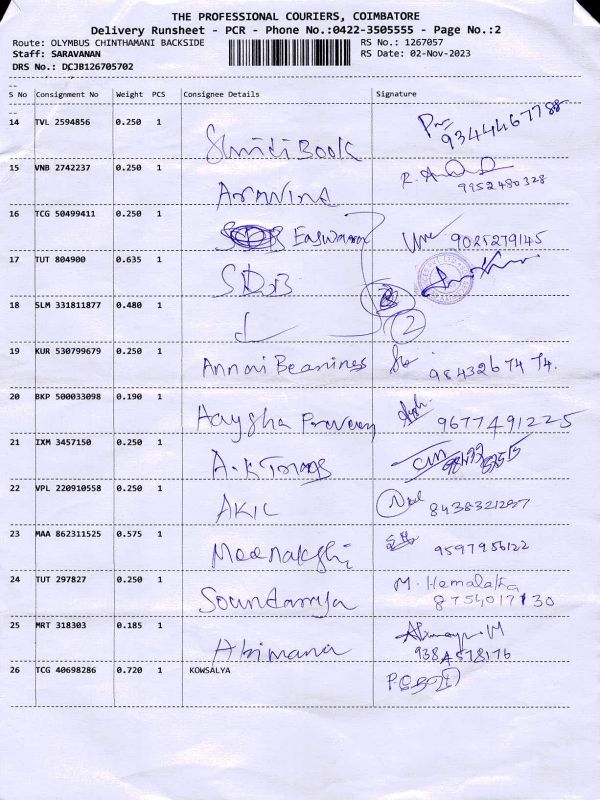 THE PROFESSIONAL COURIERS, COIMBATORE
Delivery Runsheet - PCR - Phone No.:0422-3505555 - Page No.:2
Route: OLYMBUS CHINTHAMANI BACKSIDE RS No.: 1267057
Staff: SARAVANAN RS Date: 02-Nov-2023
DRS No.: DCJB126705702
S No Consignment No Weight PCS Consignee Details Signature
14 TVL 2594856 0.250 1 Book 9344467788
15 VNB 2742237 0.250 1 Aravind 9952480328
16 TCG 50499411 0.250 1 Easwaran 9025279145
17 TUT 804900 0.635 1 SDB
18 SLM 331811877 0.480 1 2
19 KUR 530799679 0.250 1 Annai Bearings 9843267474.
20 BKP 500033098 0.190 1 Aaysha Praveen 9677491225
21 IXM 3457150 0.250 1 A.K
22 VPL 220910558 0.250 1 AKIL
23 MAA 862311525 0.575 1 Meenakshi 9597956122
24 TUT 297827 0.250 1 Soundarrya M. Hemalatha
8754017130
25 MRT 318303 0.185 1 Abimanu
9384578176
26 TCG 40698286 0.720 1 KOWSALYA